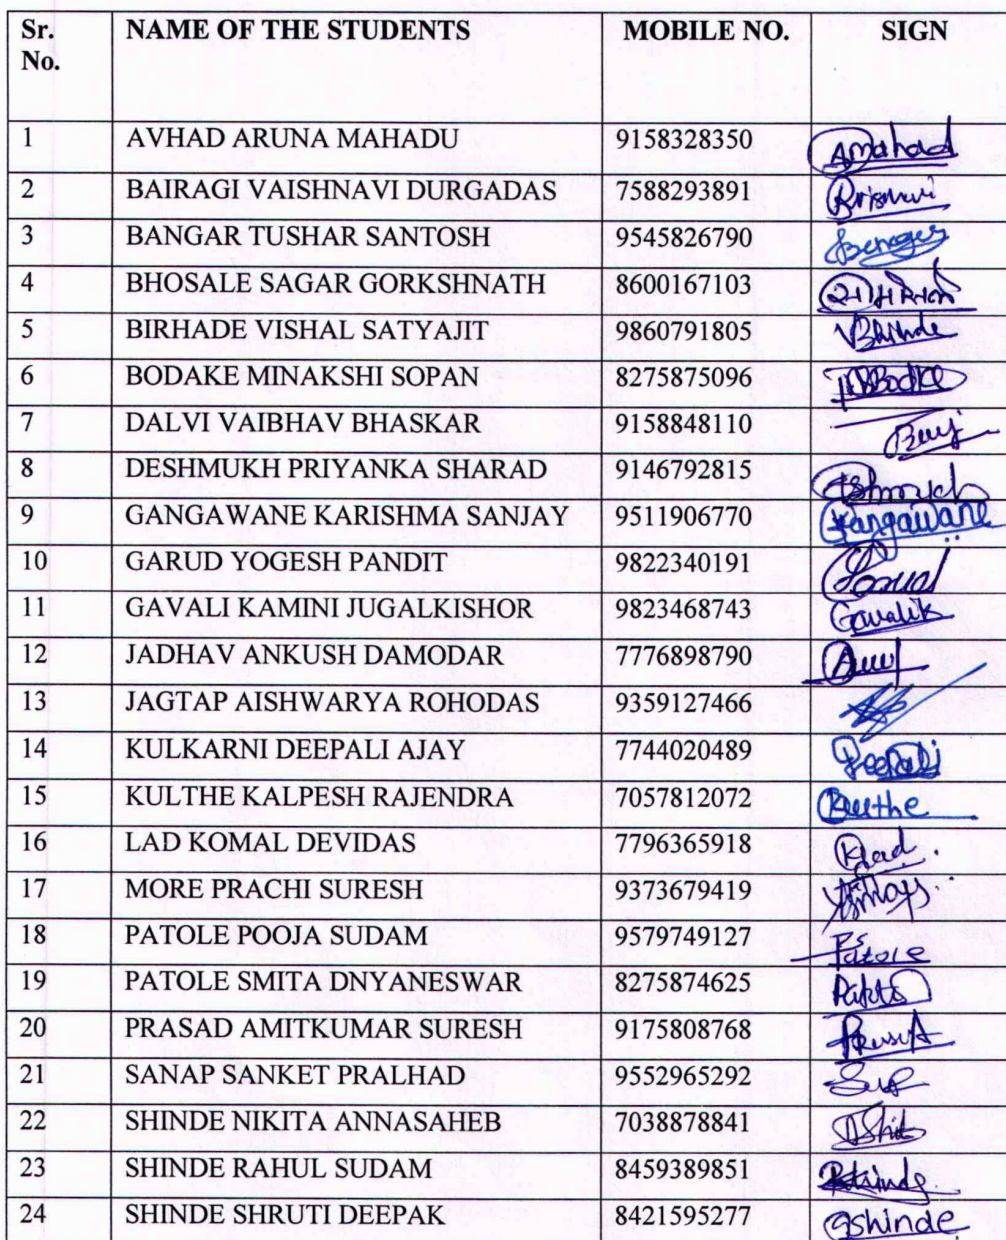 Sr. No. NAME OF THE STUDENTS MOBILE NO. SIGN
1 AVHAD ARUNA MAHADU 9158328350
2 BAIRAGI VAISHNAVI DURGADAS 7588293891
3 BANGAR TUSHAR SANTOSH 9545826790
4 BHOSALE SAGAR GORKSHNATH 8600167103
5 BIRHADE VISHAL SATYAJIT 9860791805
6 BODAKE MINAKSHI SOPAN 8275875096
7 DALVI VAIBHAV BHASKAR 9158848110
8 DESHMUKH PRIYANKA SHARAD 9146792815
9 GANGAWANE KARISHMA SANJAY 9511906770 Gangawane
10 GARUD YOGESH PANDIT 9822340191
11 GAVALI KAMINI JUGALKISHOR 9823468743 Gavalik
12 JADHAV ANKUSH DAMODAR 7776898790
13 JAGTAP AISHWARYA ROHODAS 9359127466
14 KULKARNI DEEPALI AJAY 7744020489 Deepali
15 KULTHE KALPESH RAJENDRA 7057812072
16 LAD KOMAL DEVIDAS 7796365918
17 MORE PRACHI SURESH 9373679419
18 PATOLE POOJA SUDAM 9579749127 PS Patole
19 PATOLE SMITA DNYANESWAR 8275874625
20 PRASAD AMITKUMAR SURESH 9175808768
21 SANAP SANKET PRALHAD 9552965292
22 SHINDE NIKITA ANNASAHEB 7038878841
23 SHINDE RAHUL SUDAM 8459389851
24 SHINDE SHRUTI DEEPAK 8421595277 Sshinde